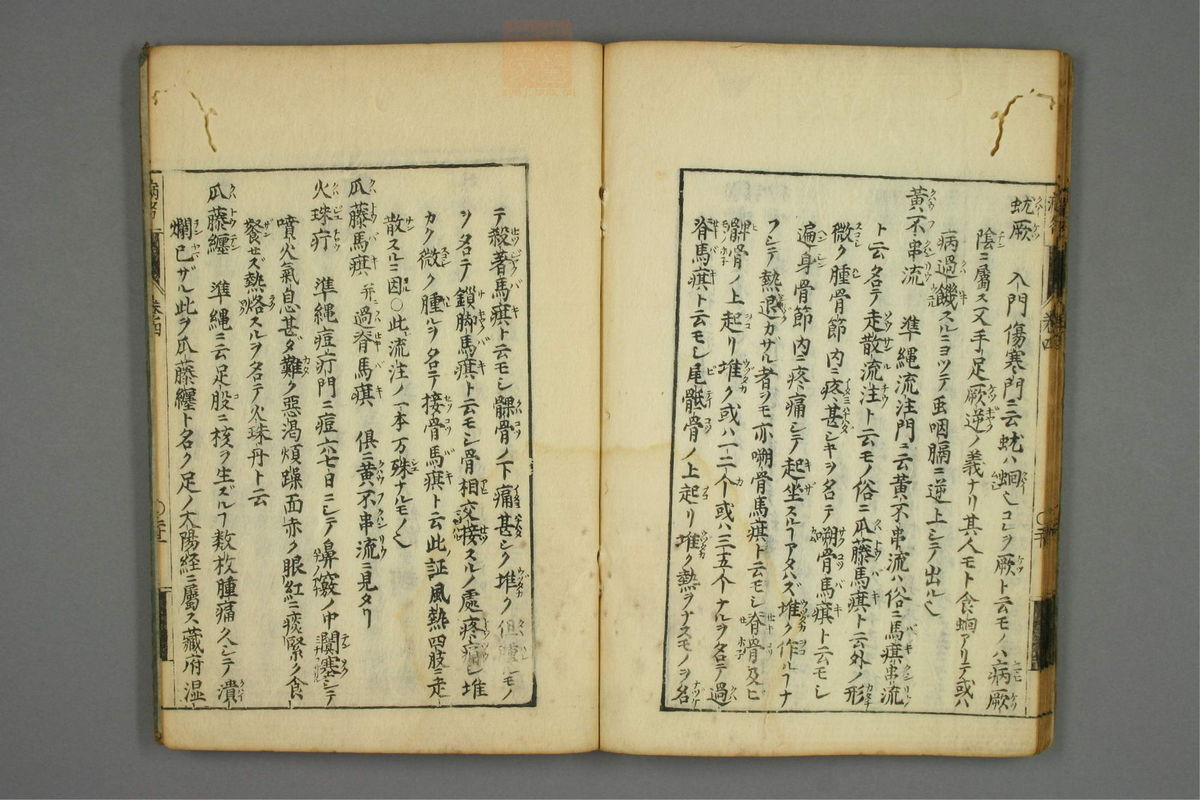 蚘厥 入門傷寒門ニ云蚘ハ蛔也コレヲ厥ト云モノハ病厥
陰ニ屬ス又手足厥逆ノ義ナリ其人モト食蛔アリテ或ハ
病過饑スルニヨツテ虫咽膈ニ逆上シテ出ル也
黄不串流 準縄流注門ニ云黄不串流ハ俗ニ馬旗串流
ト云名テ走散流注ト云モノ俗ニ瓜藤馬旗ト云外ノ形
微ク腫骨節内ニ疼甚シキヲ名テ嗍骨馬旗ト云モシ
遍身骨節内ニ疼痛シテ起坐スルヿアタハズ堆ク作ルヿナ
フシテ熱退カザル者ヲモ亦嗍骨馬旗ト云モシ脊骨及ビ
髀骨ノ上起リ堆ク或ハ一二个或ハ三五个ナルヲ名テ過
脊馬旗ト云モシ尾骶骨ノ上起リ堆ク熱ヲナスモノヲ名
テ殺著馬旗ト云モシ髁骨ノ下痛甚シク堆ク但腫ルモノ
ヲ名テ鎖脚馬旗ト云モシ骨相交接スルノ處疼痛シ堆
カク微ク腫ルヲ名テ接骨馬旗ト云此証風熱四肢ニ走
散スルニ因○此流注ノ一本万殊ナルモノ也
瓜藤馬旗 并過脊馬旗 俱ニ黄不串流ニ見タリ
火珠疔 準縄痘疔門ニ痘六七日ニシテ鼻竅ノ中闐塞シテ
噴火氣息甚ダ難ク惡渇煩躁面赤ク眼紅ニ痰緊ク食
餐セズ熱烙スルヲ名テ火珠丹ト云
瓜藤纏 準縄ニ云足股ニ核ヲ生ズルヿ数枚腫痛久シテ潰
爛已ザル此ヲ瓜藤纏ト名ク足ノ太陽経ニ屬ス藏府湿